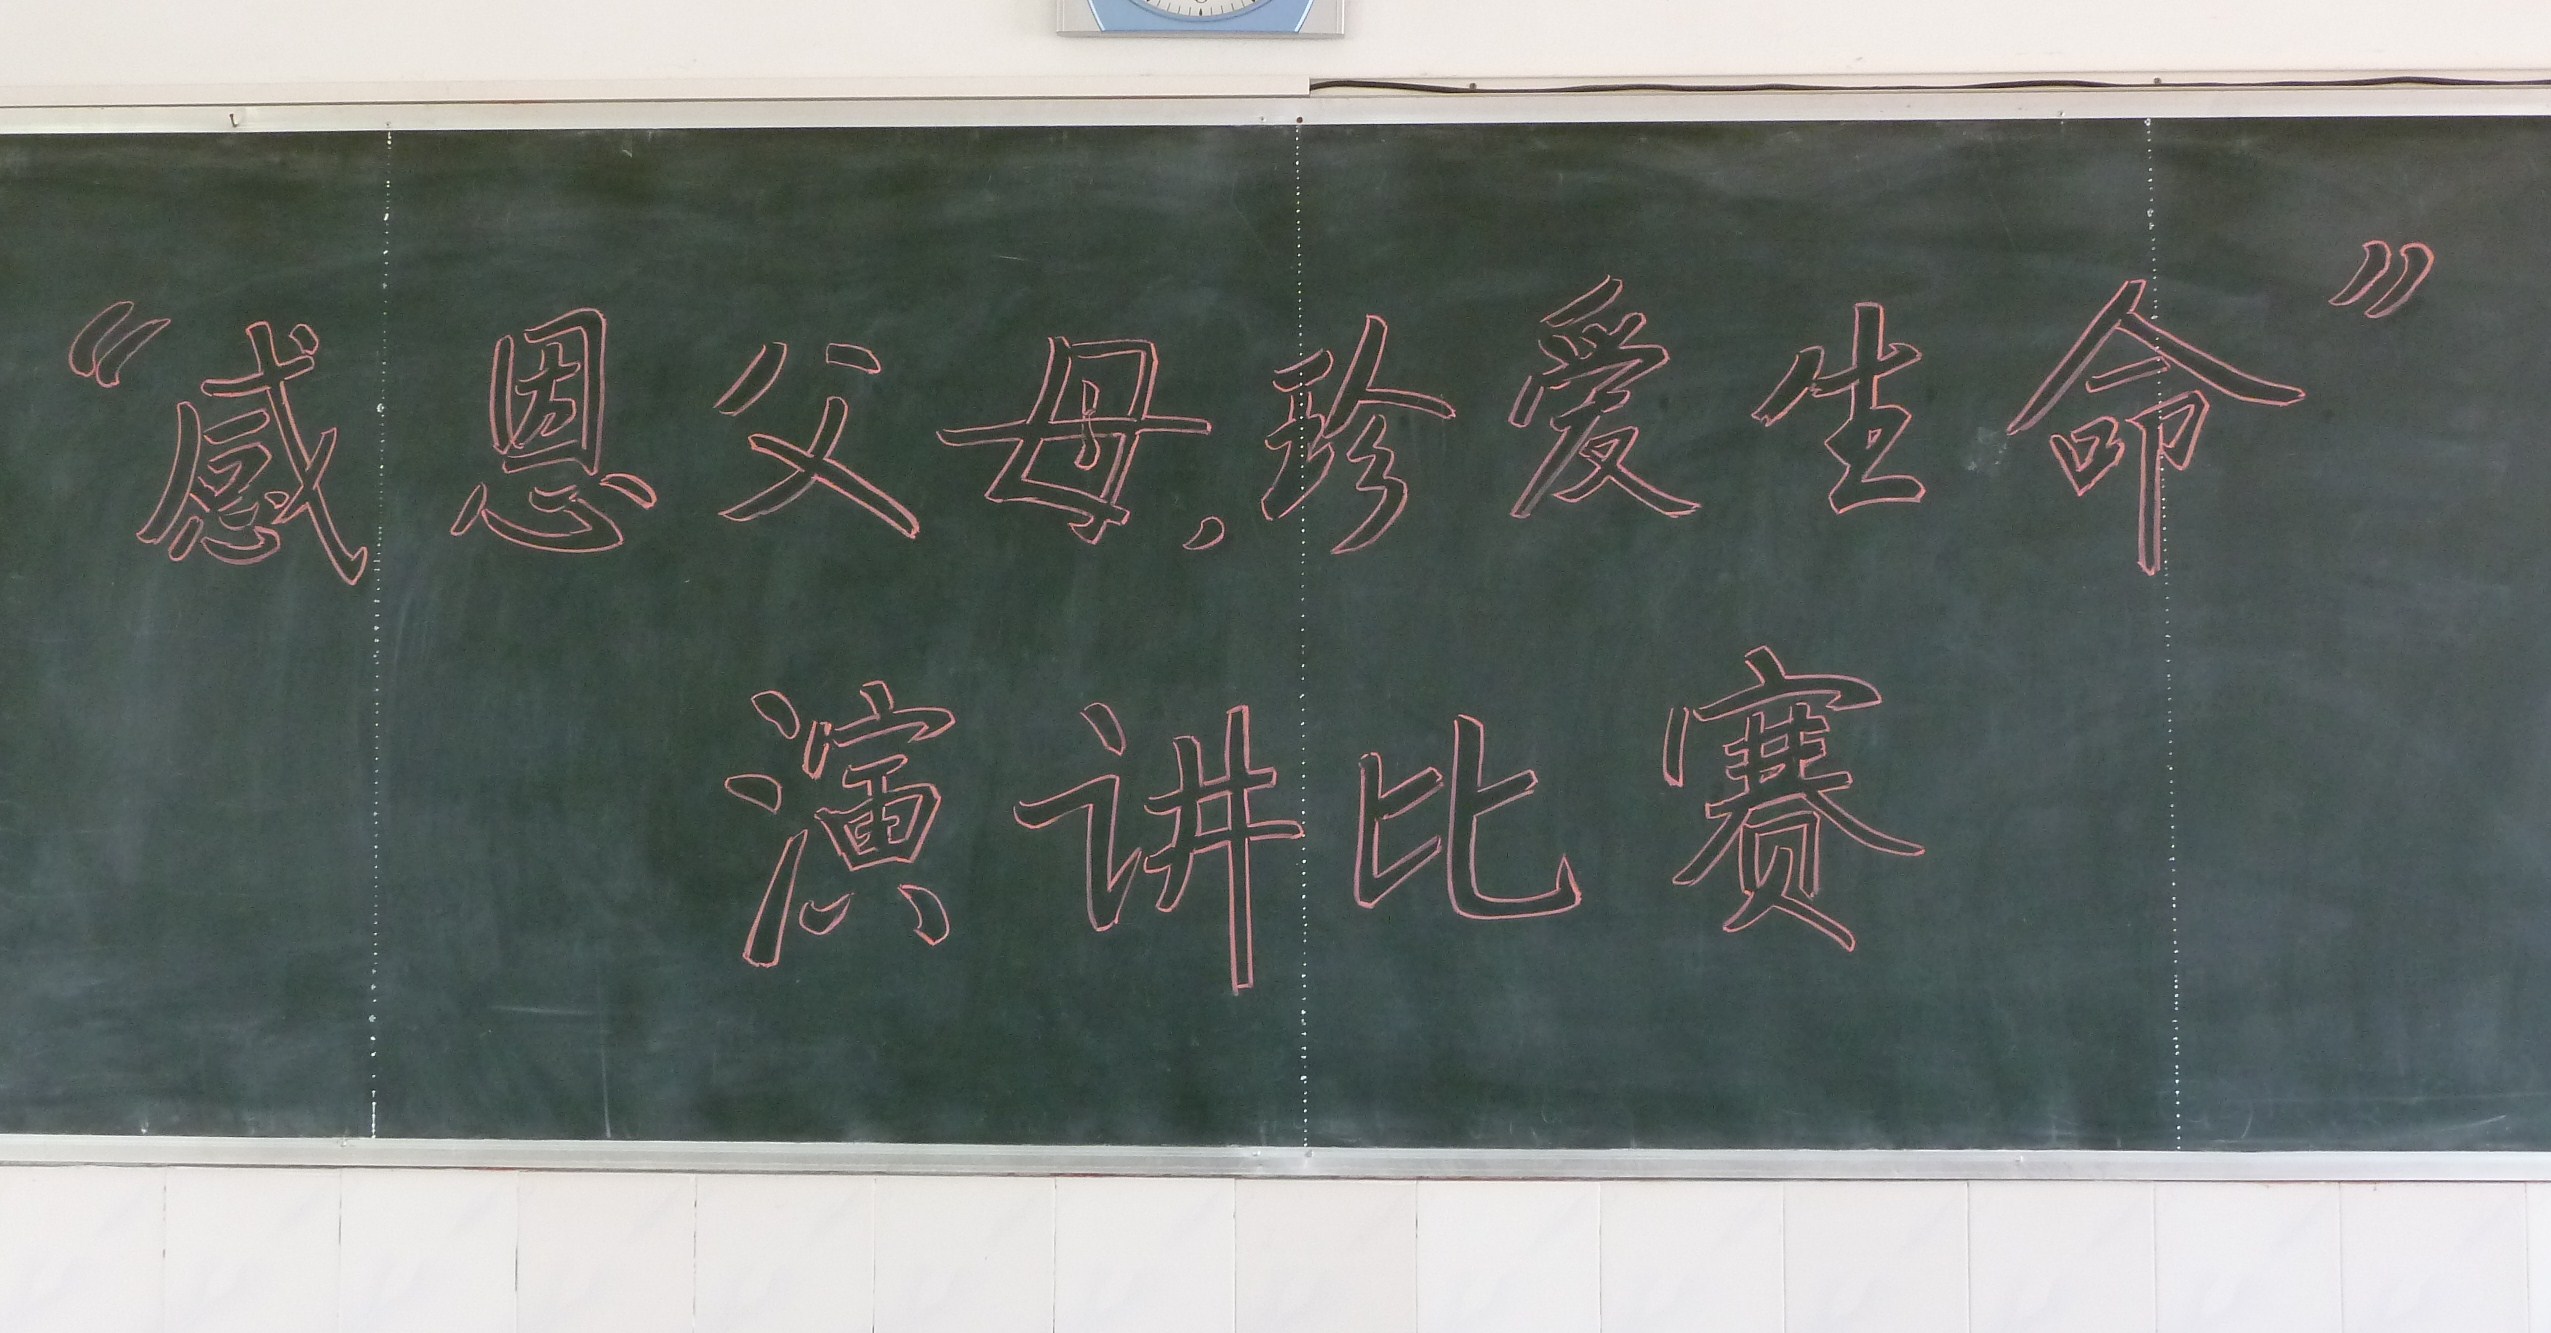 “感恩父母，珍爱生命”
演讲比赛